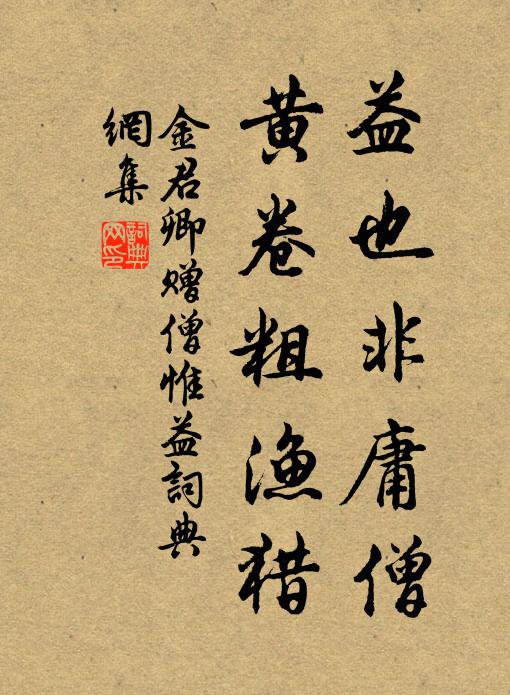 益也非庸僧
黄卷粗渔猎
金君卿赠僧惟益詞典
網集
詞典
网印